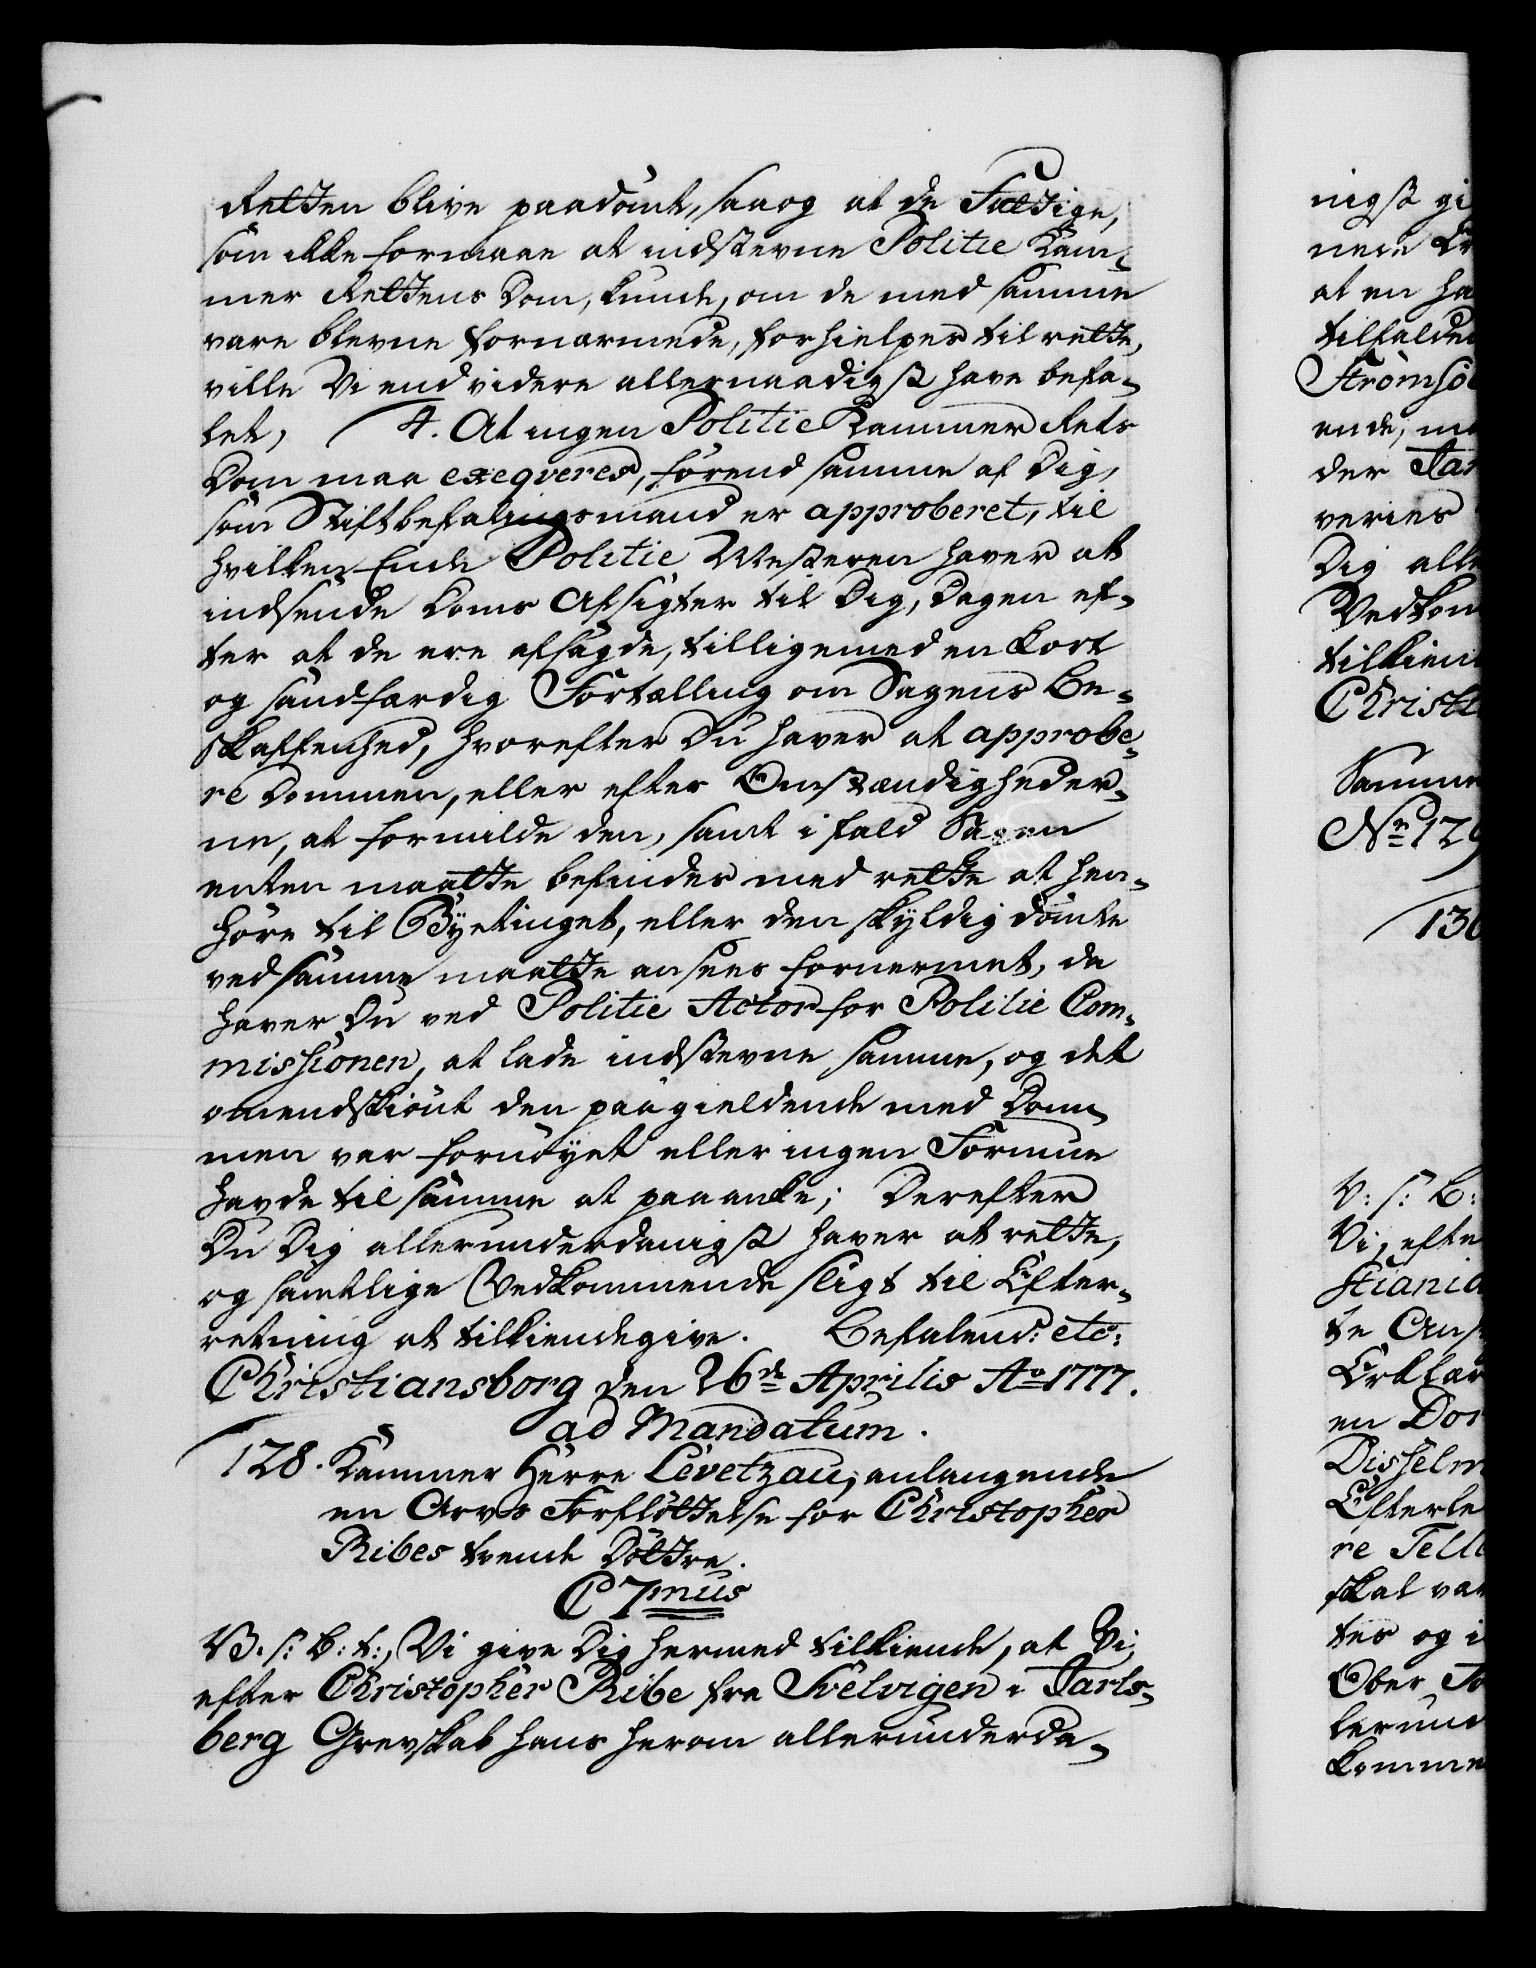 Retten blive paadömt, saa og at de Fattige,
som ikke formaae at indstevne Politie Kam-
mer Rettens Dom, kunde, om de med samme
vare blevne fornærmede, forhielpes til rette,
ville Vi end videre allernaadigst have befa-
let, 4. At ingen Politie Kammer Rets
Dom maa exeqveres, förend samme af Dig,
som Stiftbefalingsmand er approberet, til
hvilken Ende Politie Mesteren haver at
indsende Doms Afsigter til Dig, Dagen ef-
ter at de ere afsagde, tilligemed en kort
og sandfærdig Fortælling om Sagens Be-
skaffenhed, hvorefter Du haver at approbe-
re Dommen, eller efter Omstændigheder-
ne, at formilde den, samt i fald Sagen
enten maatte befindes med rette at hen-
höre til Byetinget, eller den skyldig dömte
ved samme maatte ansees fornermet, da
haver Du ved Politie Actor for Politie Com-
missionen, at lade indstevne samme, og det
omendskiönt den paagieldende med Dom-
men var fornöyet eller ingen Formue
havde til samme at paaanke; Derefter
Du Dig allerunderdanigst haver at rette,
og samtlige Vedkommende sligt til Efter-
retning at tilkiendegive. Befalend: etc:
Christiansborg den 26de Aprilis Ao 1777.
ad Mandatum.
128. Kammer Herre Levetzau, anlangende
en Arvs Forflöttelse for Christopher
Ribes tvende Döttre.
C 7mus
V. s: B: t:, Vi give Dig hermed tilkiende, at Vi,
efter Christopher Ribe fra Svelvigen i Jarls-
berg Grevskab hans herom allerunderda-
nigst gi
nere
at en ha
tilfalde
Strömsö
ende, m
der Jar
veries
Dig alle
Vedkom
tilkien
Christi
Samme
No 129
130
V: s: B:
Vi, efte
stiania
te An
Erklær
en Do
Disselm
Efterle
re Tell
skal va
tes og i
Ober
lerund
komme